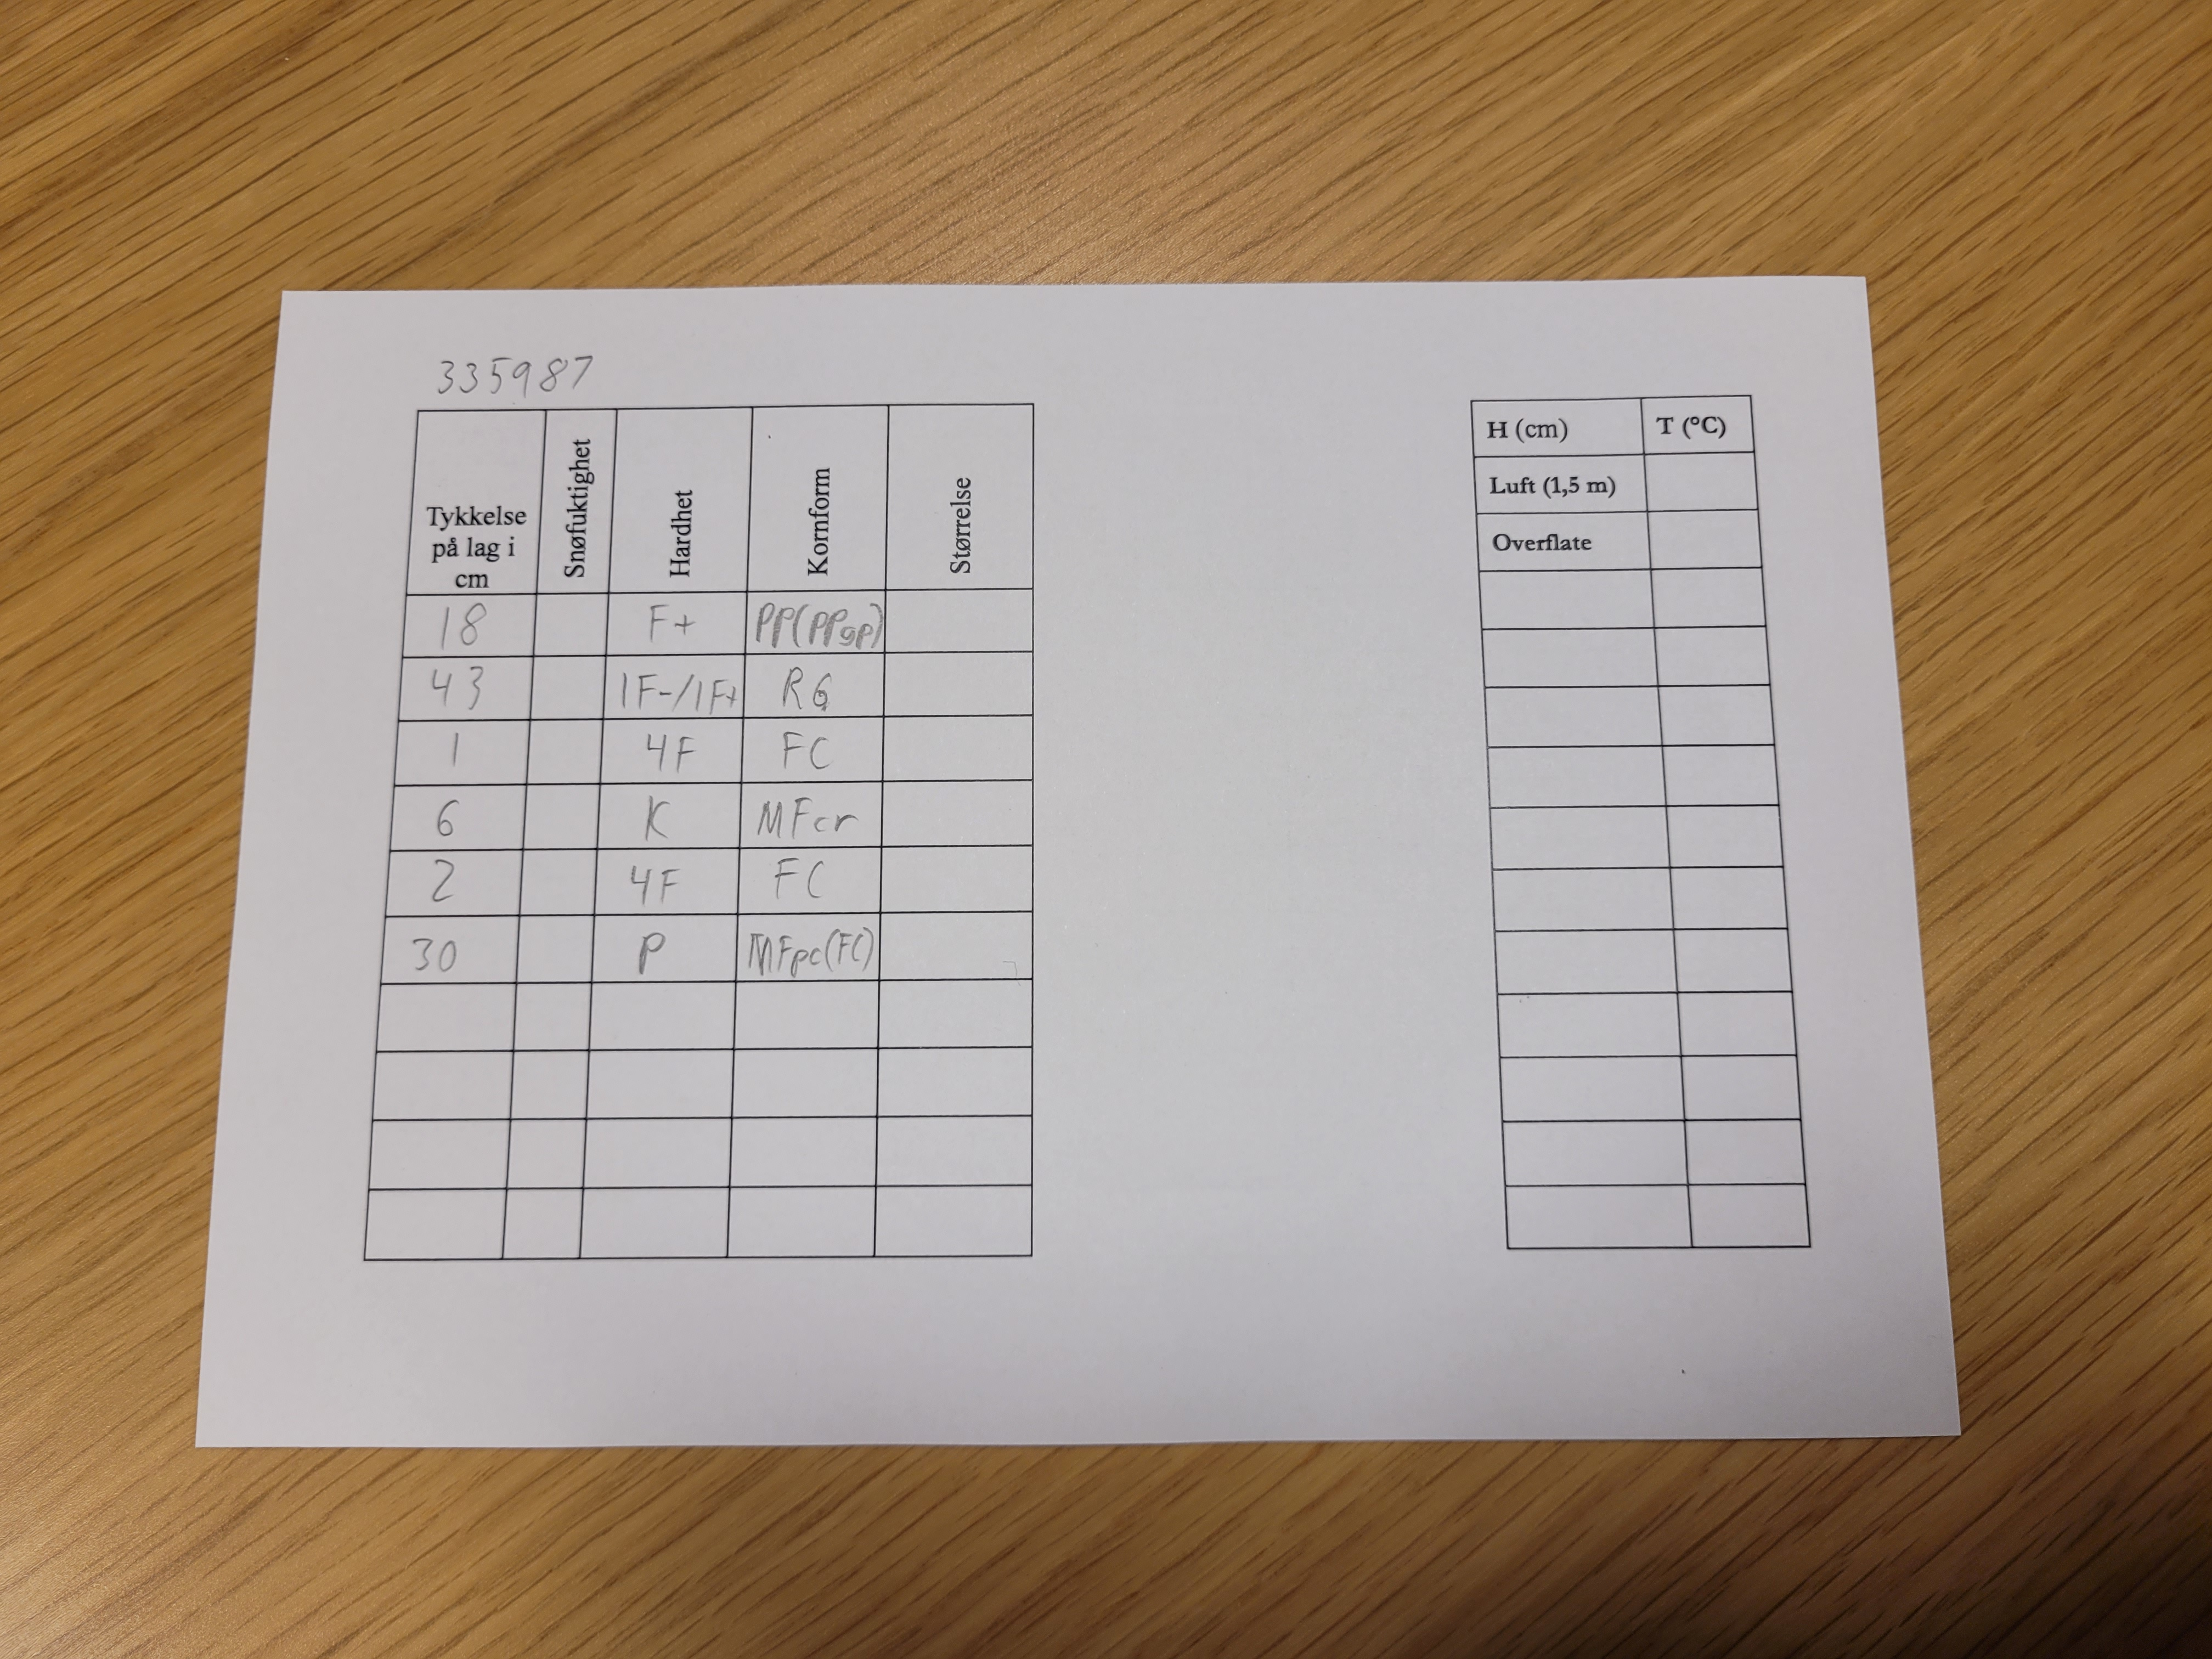 335987
Tykkelse på lag i cm Snøfuktighet Hardhet Kornform Størrelse
18 F+ PP(PPgp)
43 1F-/1F+ RG
1 4F FC
6 K MFcr
2 4F FC
30 P MFpc(FC)
H (cm) T (°C)
Luft (1,5 m)
Overflate